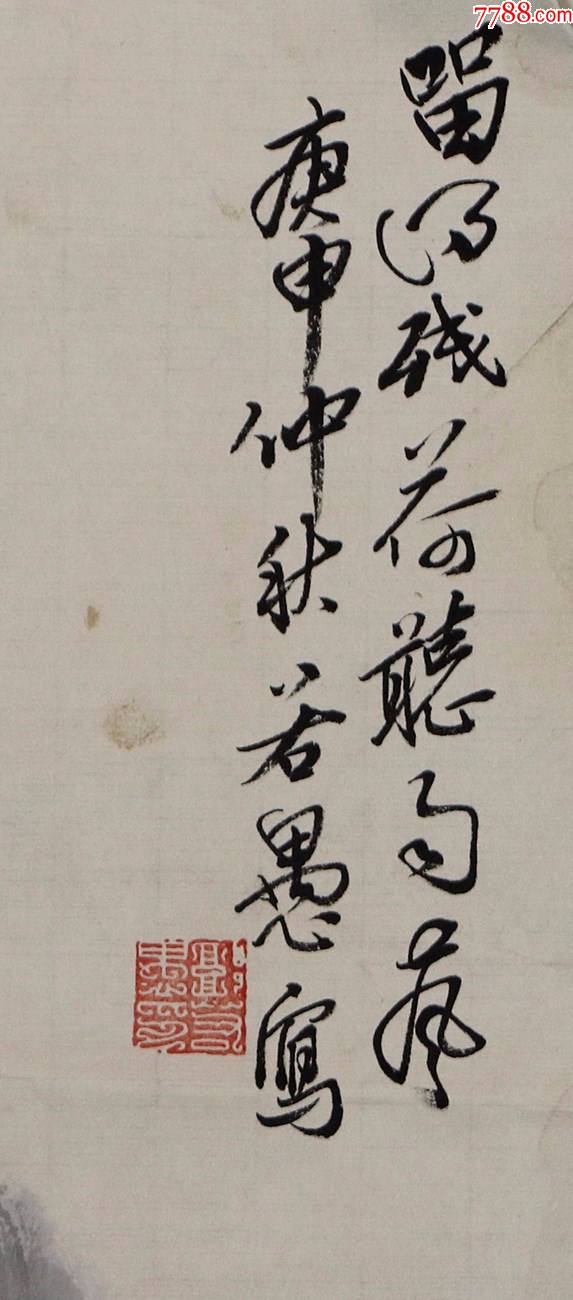 7788.com
留得残荷聽雨声
庚申仲秋若愚寫